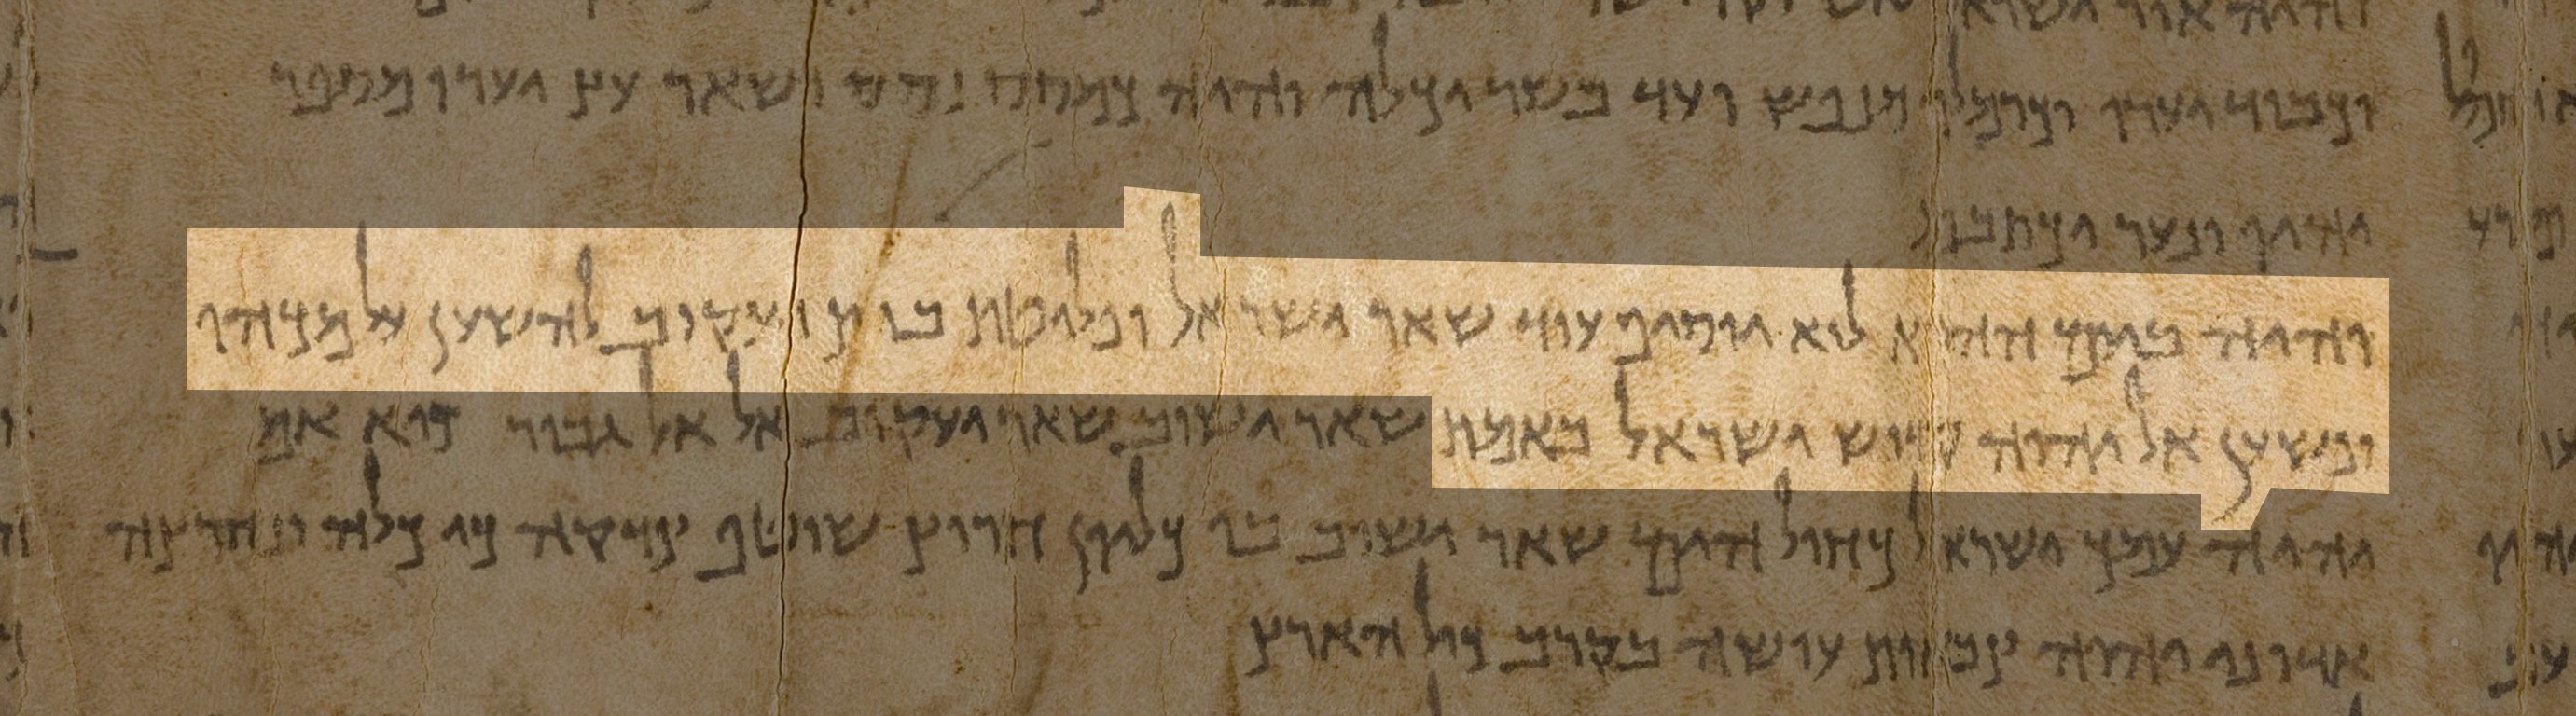 וכבוד יערו וכרמלו מנפש ועד בשר יכלה והיה כמסס נסס ושאר עץ יערו מספר
יהיו ונער יכתבם
והיה ביום ההוא לוא יוסיף עוד שאר ישראל ופליטת בית יעקוב להשען על מכהו
ונשען אל יהוה קדוש ישראל באמת שאר ישוב שאר יעקוב אל אל גבור כיא אם
יהיה עמך ישראל כחול הים שאר ישוב בו כליון חרוץ שוטף צדקה כי כלה ונחרצה
אדוני יהוה צבאות עושה בקרב כול הארץ